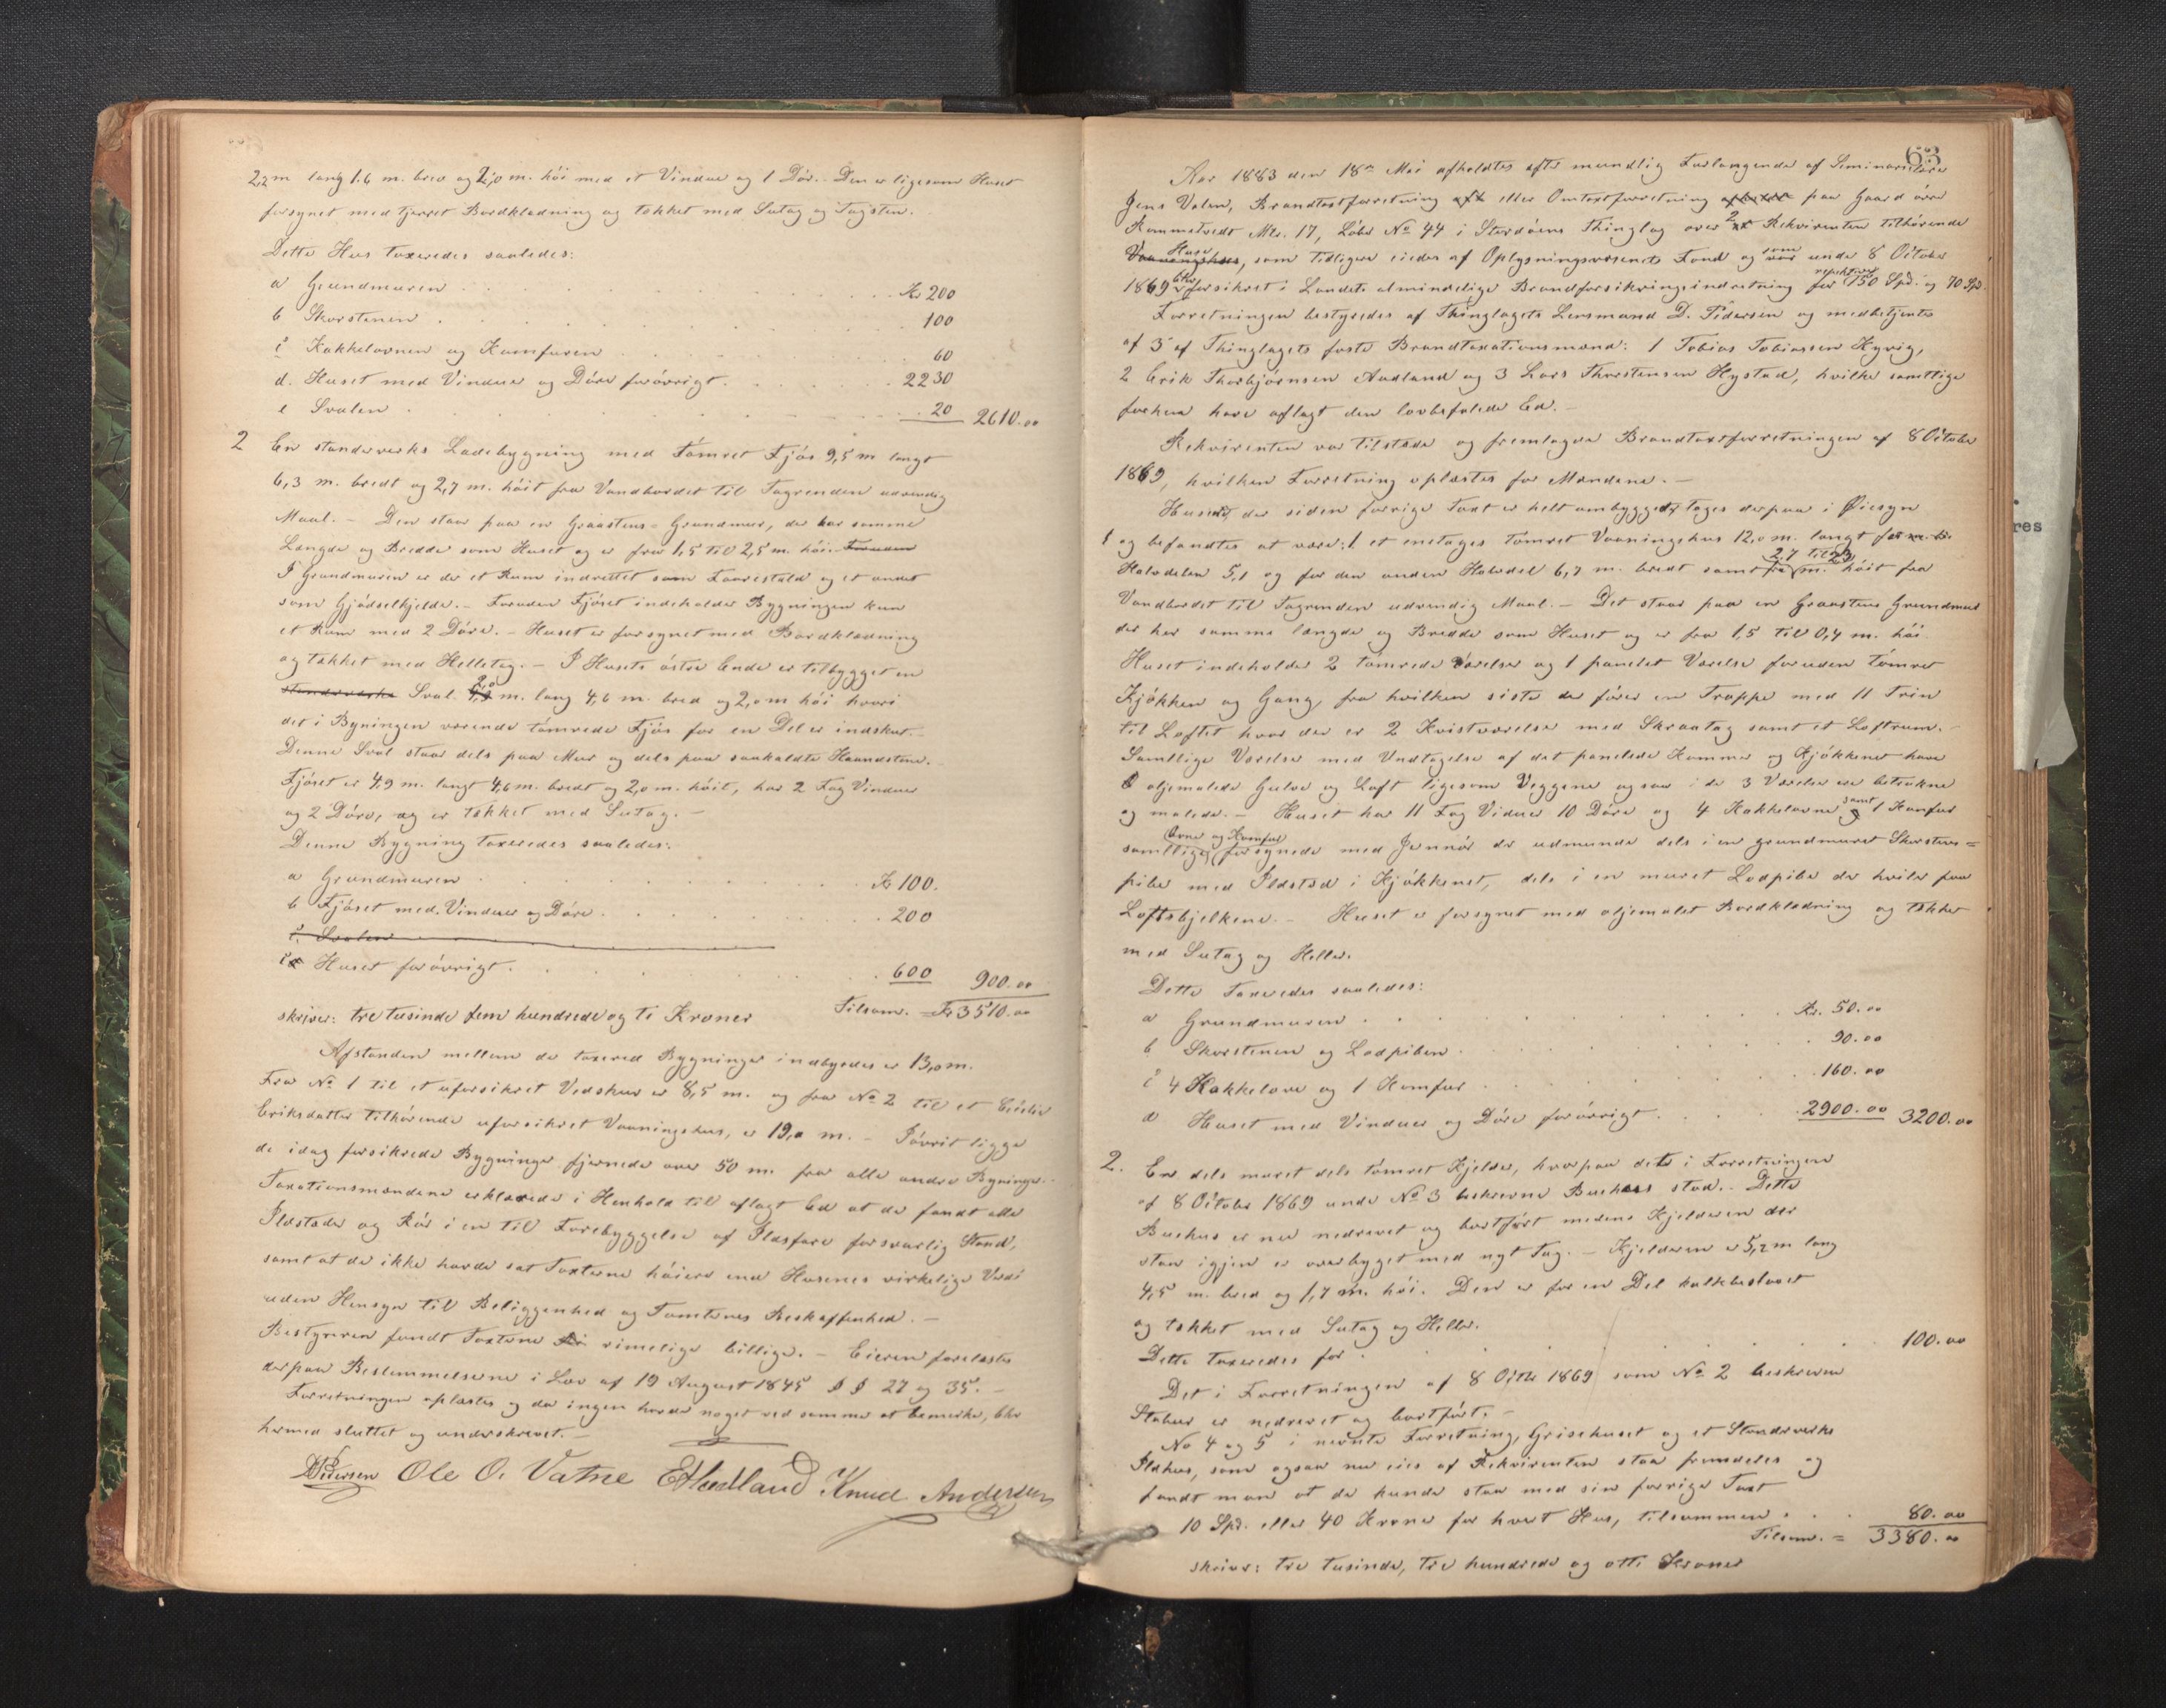 2,2 m lang 1,6 m. bred og 2,0 m. höi med et Vindue og 1 Dör. Den er ligesom Huset
forsynet med tjærret Bordklædning og tækket med Sutag og Tagsten.
Dette Hus taxeredes saaledes:
a Grundmuren Kr 200
b Skorstenen 100
c Kakkelovnen og Komfuren 60
d. Huset med Vinduer og Döre forövrigt. 2230
e Svalen 20 2610.00
2 En standerverks Ladebygning med Tömret Fjös 9,5 m langt
6,3 m. bredt og 2,7 m. höit fra Vandbordet til Tagrenden udvendig
Maal. – Den staar paa en Graastens-Grundmur, der har samme
Længde og Bredde som Huset og er fra 1,5 til 2,5 m. höi. Foruden
I Grundmuren er der et Rum indrettet som Faarestald og et andet
som Gjödselkjelder. – Foruden Fjöset indeholder Bygningen kun
et Rum med 2 Döre. – Huset er forsynet med Bordklædning
og tækket med Helletag. – I Husets östre Ende er tilbygget en
standverks Sval 2,0 m. lang 4,6 m. bred og 2,0 m höi hvori
det i Byningen værende tömrede Fjös for en Del er indskut. –
Denne Sval staar dels paa Mur og dels paa saakaldte Haandstene.
Fjöset er 4,9 m. langt 4,6 m. bredt og 2,0 m. höit, har 2 Fag Vinduer
og 2 Döre, og er tækket med Sutag. –
Denne Bygning taxeredes saaledes:
a Grundmuren Kr 100.
b Fjöset med Vinduer og Döre. 200
c. Svalen
c Huset forövrigt. 600 900.00
skriver: tre tusinde fem hundrede og ti Kroner Tilsam. = Kr 3510.00
Afstanden mellem de taxered Bygninger indbyrdes er 13,0 m.
Fra No 1 til et uforsikret Vedskur er 8,5 m. og fra No 2 til et
Eriksdatter tilhörende uforsikret Vaaningshus, er 19,0 m. – Iövrit ligge
de idag forsikrede Bygninger fjernede over 50 m. fra alle andre Byninger. –
Taxationsmændene erklærede i Henhold til aflagt Ed at de fandt alle
Ildsteder og Rör i en til Forebyggelse af Ildsfare forsvarlig Stand,
samt at de ikke havde sat Taxterne höiere end Husenes virkelige Værdi
uden Hensyn til Beliggenhed og Tomternes Beskaffenhed. –
Bestyreren fandt Taxterne rimelige billige. – Eieren forelæstes
derpaa Bestemmelserne i Lov af 19 August 1845 § § 27 og 35. –
Forretningen oplæstes og da ingen havde noget ved samme at bemerke, blev
hermed sluttet og underskrevet. –
DPedersen Ole O. Vatne EAadland Knud Andersen
63
Aar 1883 den 18de Mai afholdtes efter mundlig Forlangende af Seminarielærer
Jens Valen, Brandtaxtforretning eller Omtaxtforretning paa Gaard övre
Rommetvedt Mtr. 17, Löbe No 44 i Stordöens Thinglag over 2 Rekvirenten tilhörende
Vaaningshuse, Huse som tidligere eiedes af Oplysningsvæsenets Fond og som under 8 October
1869 blev forsikret i Landets almindelige Brandforsikringsindretning for respektive 150 Spd. og 70 Spd.
Forretningen bestyredes af Thinglagets Lensmand D. Pedersen og medbetjentes
af 3 af Thinglagets faste Brandtaxationsmænd: 1 Tobias Tobiassen Hyvig,
2 Erik Thorbjörnsen Aadland og 3 Lars Thorstensen Hystad, hvilke samtlige
forhen have aflagt den lovbefalede Ed. –
Rekvirenten var tilstede og fremlagde Brandtaxtforretningen af 8 October
1869, hvilken Forretning oplæstes for Mændene. –
Husene, der siden forrige Taxt er helt ombygget, toges derpaa i Öiesyn
1 og befandtes at være: 1 et enetages tömret Vaaningshus 12,0 m. langt for
Halvdelen 5,1 og for den anden Halvdel 6,7 m. bredt samt fra 2,7 til m. höit fra
Vandbordet til Tagrenden udvendig Maal. – Det staar paa en Graastens Grundmur
der har samme længde og Bredde som Huset og er fra 1,5 til 0,4 m. höi.
Huset indeholder 2 tömrede Værelser og 1 panelet Værelse foruden tömret
Kjökken og Gang, fra hvilken siste der förer en Trappe med 11 Trin
til Loftet hvor der er 2 Kvistværelser med Skraatag samt et Loftrum. –
Samtlige Værelser med Undtagelse af det panelede Kammer og Kjökkenet have
oljemalede Gulve og Loft ligesom Væggene ogsaa i de 3 Værelser ere betrukne
og malede. – Huset har 11 Fag Viduer 10 Döre og 4 Kakkelovne samt 1 Komfur
samtlige Ovne og Komfur forsynede med Jernrör der udmunde dels i en grundmuret Skorstens=
pibe med Ildsted i Kjökkenet, dels i en muret Lodpibe der hviler paa
Loftsbjelkene. – Huset er forsynet med oljemalet Bordklædning og tækket
med Sutag og Heller.
Dette Taxeredes saaledes:
a Grundmuren Kr. 50.00
b Skorstenen og Lodpiben. 90.00
c 4 Kakkelovne og 1 Komfur 160.00
d Huset med Vinduer og Döre forövrigt. 2900.00 3200.00
2. En dels muret dels tömret Kjelder, hvorpaa det i Forretningen
af 8 October 1869 under No 3 beskrevne Buehus stod. Dette
Buehus er nu nedrevet og bortfört medens Kjelderen der
staar igjen er overbygget med nyt Tag. – Kjelderen er 5,2 m lang
4,5 m. bred og 1,7 m. höi. Den er for en Del kalkbeslaaet
og tækket med Sutag og Heller.
Dette taxeredes for 100.00
Det i Forretningen af 8 Octbr 1869 som No 2 beskreven
Stabur er nedrevet og bortfört. –
No 4 og 5 i nevnte Forretning, Grisehuset og et Standerverks
Ildhus, som ogsaa nu eies af Rekvirenten staar fremdeles og
fandt man at de kunde staa med sin forrige Taxt
10 Spd. eller 40 Kroner for hvert Hus, tilsammen 80.00
Tilsam. = 3380.00
skriver: tre tusinde, tre hundrede og otti Kroner